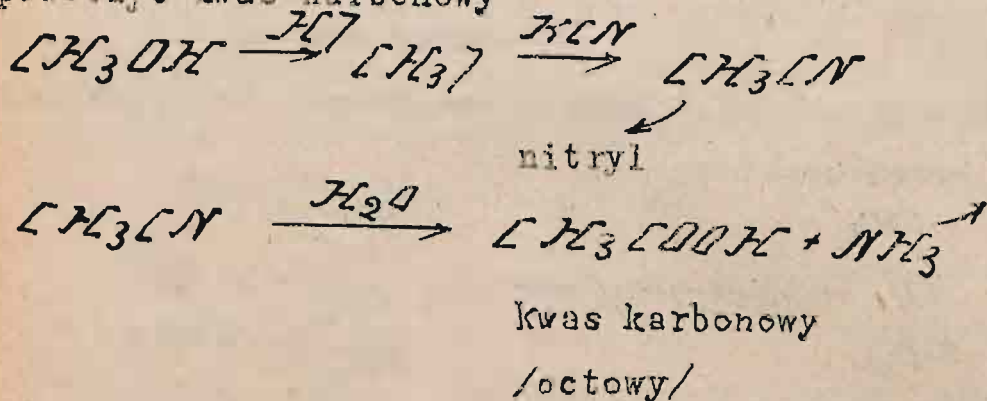 kwas karbonowy
CH₃OH —HJ→ CH₃J —KCN→ CH₃CN
nitryl
CH₃CN —H₂O→ CH₃COOH + NH₃↗
Kwas karbonowy
/octowy/